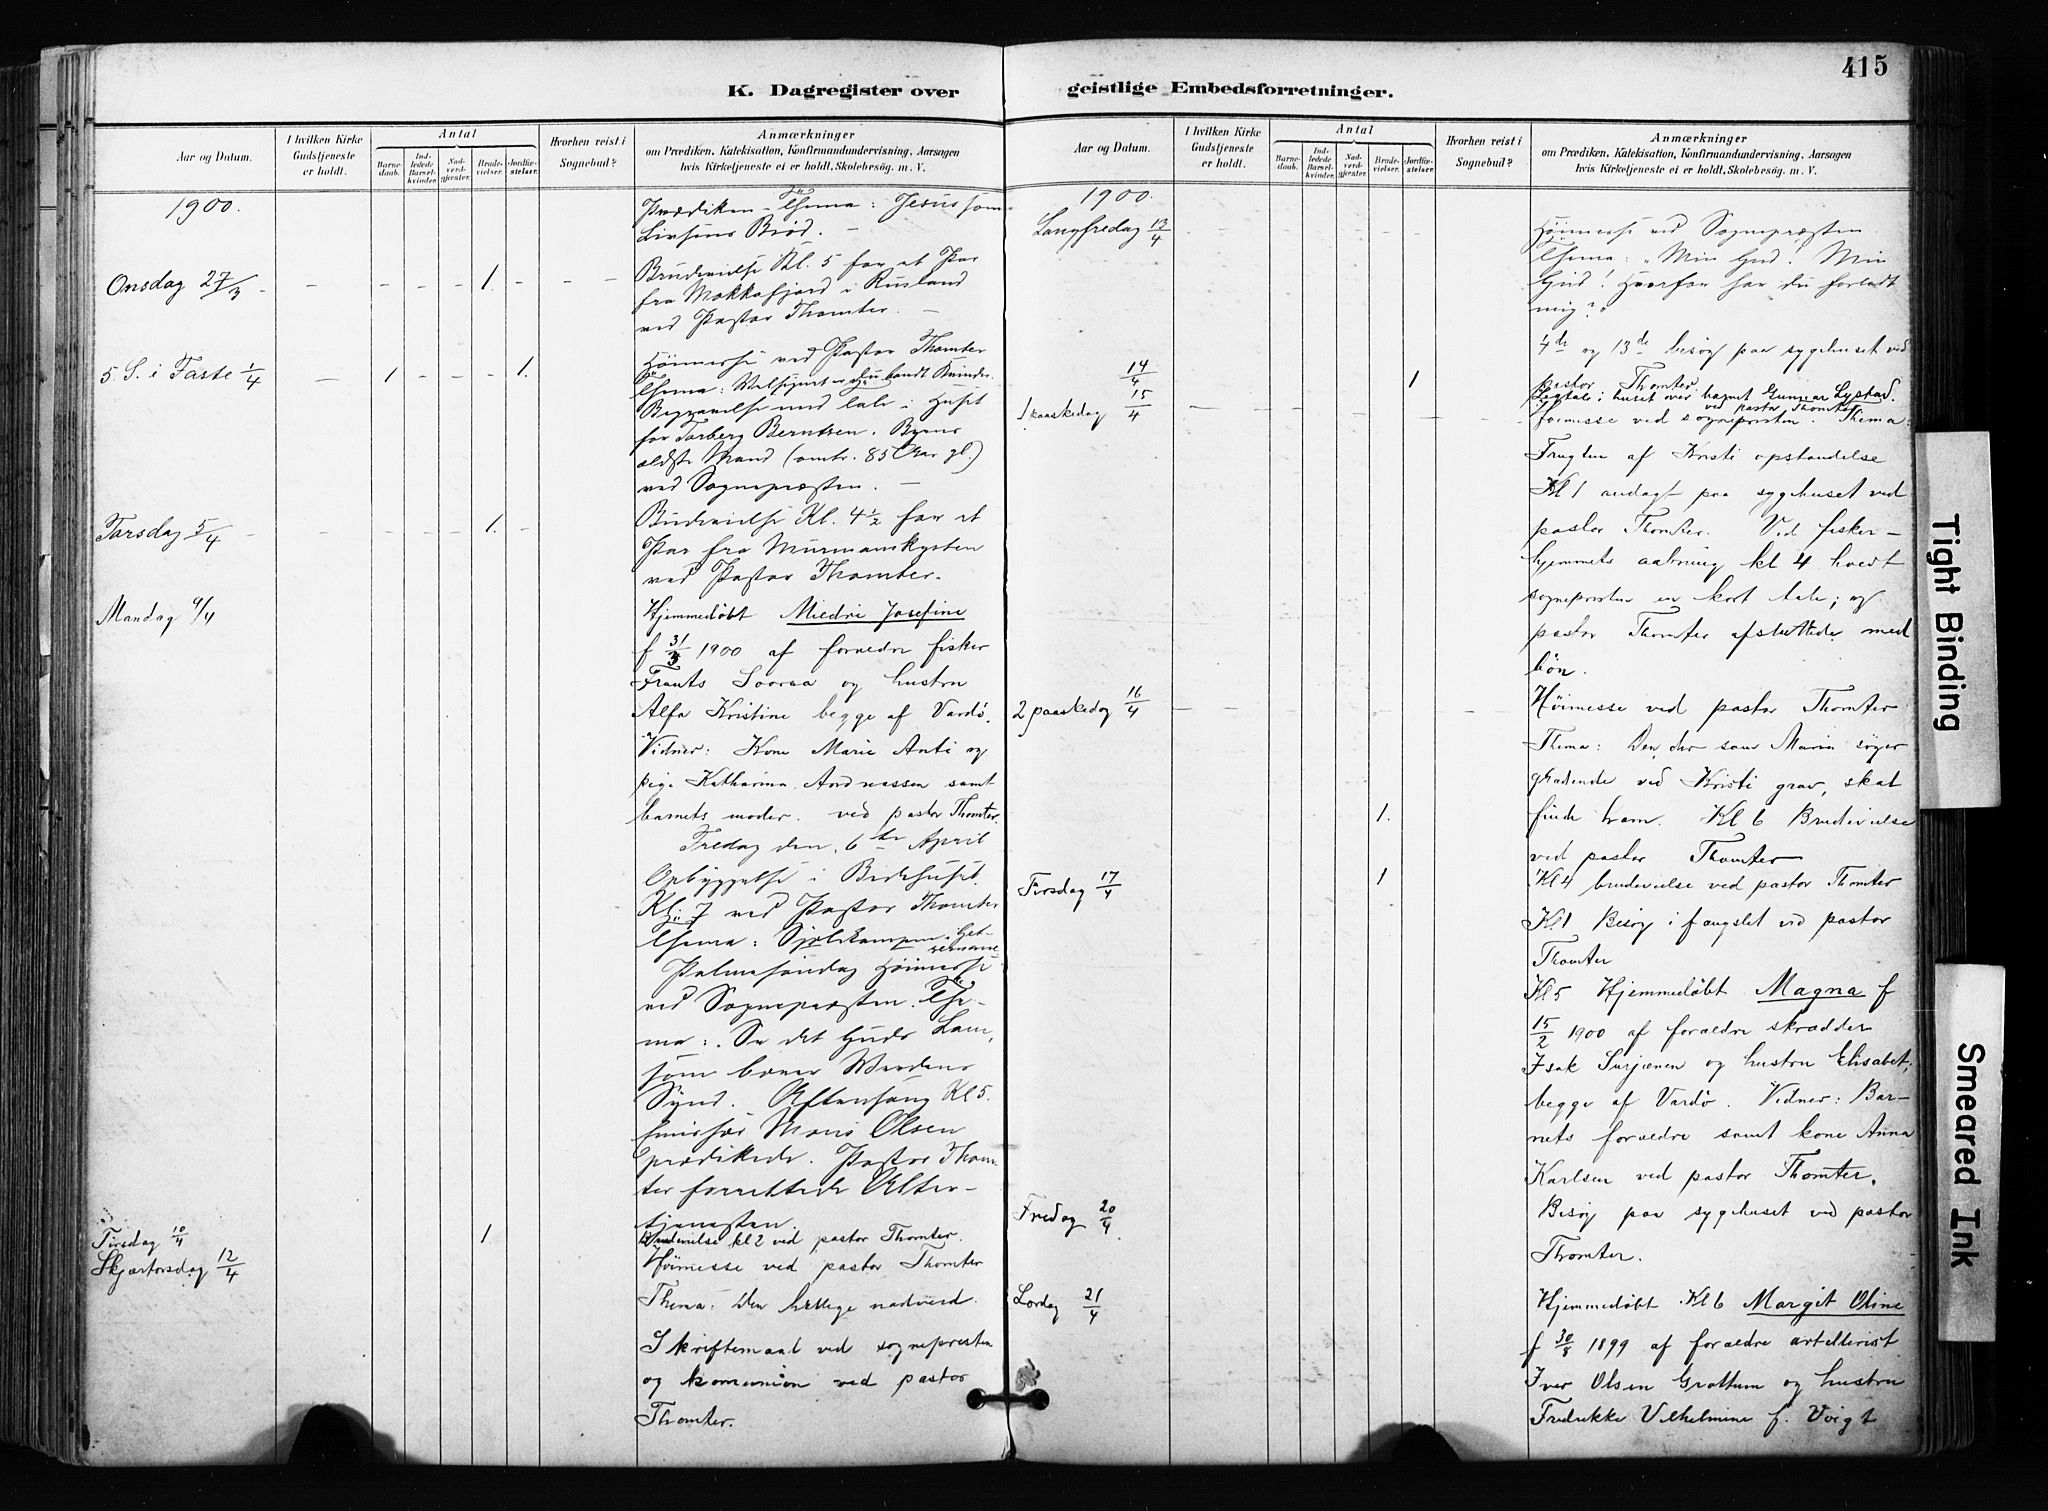 415
K. Dagregister over geistlige Embedsforretninger.
Aar og Datum.
I hvilken Kirke Gudstjeneste er holdt.
Antal
Barnedaab.
Indledede Barselkvinder.
Nadverdgjæster.
Brudevielser.
Jordfæstelser.
Hvorhen reist i Sognebud?
Anmærkninger
om Prædiken, Katekisation, Konfirmandundervisning, Aarsagen
hvis Kirketjeneste ei er holdt, Skolebesøg. m. V.
1900.
Prædiken - Thema: Jesus som
Livsens Brød. –
Onsdag 27/3 - - - - - 1. - - -
Brudevielse Kl. 5 for et Par
fra Mokkafjord i Rusland
ved Pastor Thomter. –
5. S. i Faste 1/4 - 1 - - - 1.
Høimesse ved Pastor Thomter
Thema: Velsignet er du blandt Kvinder.
Begravelse med tale i Huset
for Torberg Berntsen. Byens
ældste Mand (omtr. 85 Aar gl.)
ved Sognepræsten. –
Torsdag 5/4 - - - - - 1. -
Brudevielse Kl. 4 1/2 for et
Par fra Murmanskysten
ved Pastor Thomter.
Mandag 9/4
Hjemmedøbt Miedri Josefine
f 31/3 1900 af forældre fisker
Frants Sooraa og hustru
Alfa Kristine begge af Vardø.
Vidner: Kone Marie Anti og
pige Katharina Andreassen samt
barnets moder. ved pastor Thomter.
Fredag den 6te April
Opbyggelse i Bedehuset
Kl. 7 ved Pastor Thomter
Thema: Sjælekampen i Getsemane
Palmesøndag Høimesse
ved Sognepræsten. The-
ma: Se det Guds Lam,
som bærer Verdens
Synd. Aftensang Kl 5.
Emissær Moris Olsen
prædikede. Pastor Thom
ter forrettede Alter-
tjenesten.
Tirsdag 10/4 1.
Brudevielse kl 2 ved pastor Thomter.
Skjærtorsdag 12/4
Høimesse ved pastor Thomter
Thema: Den hellige nadverd.
Skriftemaal ved sognepresten
og komunion ved pastor
Thomter.
Aar og Datum.
I hvilken Kirke Gudstjeneste er holdt.
Antal
Barnedaab.
Indledede Barselkvinder.
Nadverdgjæster.
Brudevielser.
Jordfæstelser.
Hvorhen reist i Sognebud?
Anmærkninger
om Prædiken, Katekisation, Konfirmandundervisning, Aarsagen
hvis Kirketjeneste ei er holdt, Skolebesøg. m. V.
1900.
Langfredag 13/4
Høimesse ved Sognepræsten
Thema: "Min Gud! Min
Gud! Hvorfor har du forladt
mig?"
14/4 1
4de og 13de besøg paa sygehuset ved
pastor Thomter.
Ligtale i huset over barnet Gunnar Lystad.
ved pastor Thomter
1 paaskedag 15/4
Høimesse ved sognepresten. Thema:
Frugten af Kristi opstandelse
Kl 1 andagt paa sygehuset ved
pastor Thomter. Ved fisker-
hjemmets aabning kl 4 holdt
sognepresten en kort tale; og
pastor Thomter afsluttede med
bøn.
2 paaskedag 16/4
Høimesse ved pastor Thomter
Thema: Den der som Maria søger
grædende ved Kristi grav, skal
finde ham. Kl 6 Brudevielse
1.
ved pastor Thomter
Tirsdag 17/4 1
Kl 4 brudevielse ved pastor Thomter
Kl 1 Besøg i fængslet ved pastor
Thomter
Kl 5 Hjemmedøbt Magna f
15/2 1900 af forældre skrædder
Isak Surjænen og hustru Elisabet,
begge af Vardø. Vidner: Bar-
nets forældre samt kone Anna
Karlsen ved pastor Thomter.
Fredag 20/4.
Besøg paa sygehuset ved pastor
Thomter.
Lørdag 21/4
Hjemmedøbt Kl 6 Margit Oline
f 30/8 1899 af forældre artellerist
Iver Olsen Grottum og hustru
Fredrikke Vilhelmine f. Voigt
Tight Binding
Smeared Ink